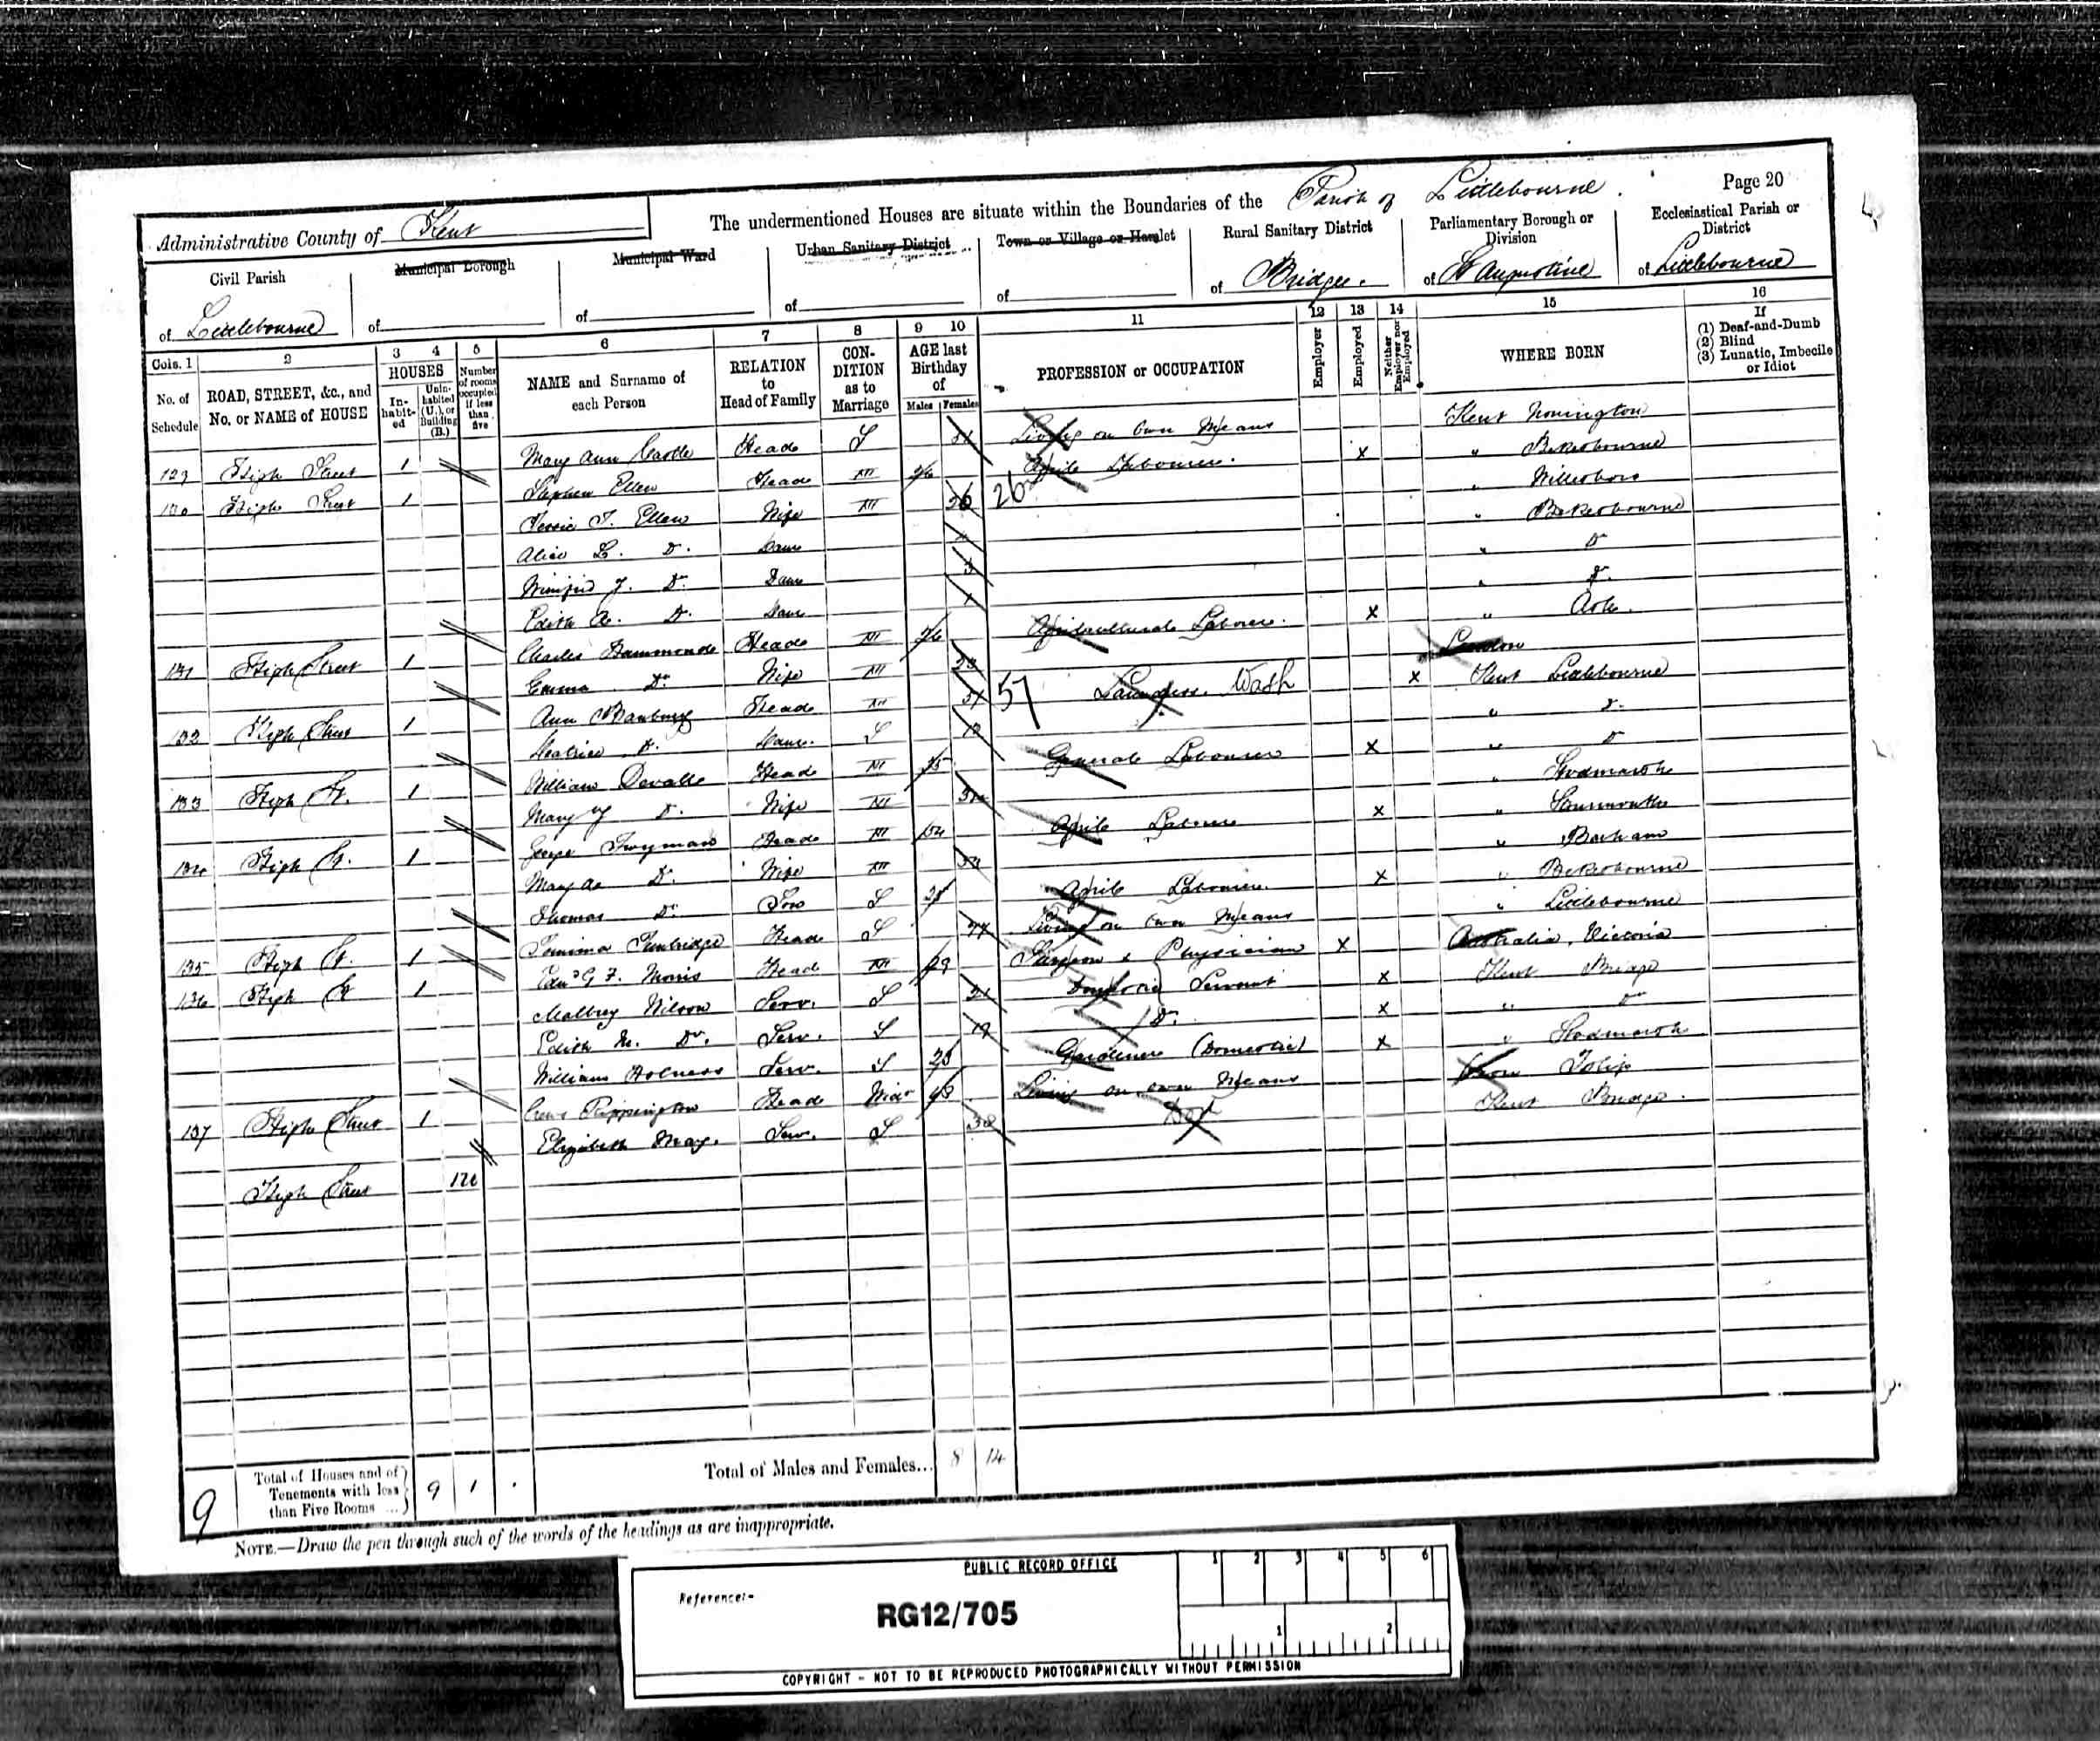 Page 20
The undermentioned Houses are situate within the Boundaries of the Parish of Littlebourne.
Administrative County of Kent
Civil Parish of Littlebourne
Municipal Borough of
Municipal Ward of
Urban Sanitary District of
Town or Village or Hamlet of
Rural Sanitary District of Bridge.
Parliamentary Borough or Division of St Augustine
Ecclesiastical Parish or District of Littlebourne
Cols. 1 2 3 4 5 6 7 8 9 10 11 12 13 14 15 16
No. of Schedule
ROAD, STREET, &c., and No. or NAME of HOUSE
HOUSES
In-habit-ed
Unin-habited (U.), or Building (B.)
Number of rooms occupied if less than five
NAME and Surname of each Person
RELATION to Head of Family
CON-DITION as to Marriage
AGE last Birthday of
Males Females
PROFESSION or OCCUPATION
Employer
Employed
Neither Employer nor Employed
WHERE BORN
If
(1) Deaf-and-Dumb
(2) Blind
(3) Lunatic, Imbecile or Idiot
High Street 1 Mary Ann Castle Head S Living on Own Means Kent Nonington
130 High Street 1 Stephen Ellen Head M 26 Agric Labourer. X " Bekesbourne
Jessie T. Ellen Wife M 26 26 " Willesboro
Alice L. Do. Daur " Bekesbourne
Do. Daur 3 " Do
Edith A. Do. Daur 1 " Do.
131 High Street 1 Charles Hammond Head M 26 Agricultural Laborer. X " Ash.
Emma Do. Wife M London
132 High Street 1 Ann Head M 57 57 Laundress. Wash X Kent Littlebourne
Beatrice Do. Daur. S " Do.
133 High St. 1 William Head M General Labourer X " Do
Mary Do. Wife M " Stodmarsh
134 High St. 1 George Twyman Head M 54 Agric Laborer X " Stourmouth
Mary A Do. Wife M " Barham
Thomas Do. Son S Agric Labourer. X " Bekesbourne
135 High St. 1 Head S Living on Own Means " Littlebourne
136 High St 1 Edwd G F. Morris Head M 29 Surgeon & Physician X Australia, Victoria
Wilson Serv. S 21 Domestic Servant X Kent Bridge
Edith M. Do. Serv. S 19 Do. X " Do
William Holness Serv. S Gardener (Domestic) X " Stodmarsh
137 High Street 1 Head Widr Living on own Means
Elizabeth May. Serv. S 38 Do Kent Bridge.
High Street 1U
9 Total of Houses and of Tenements with less than Five Rooms ... 9 1
Total of Males and Females... 8 14
NOTE.—Draw the pen through such of the words of the headings as are inappropriate.
PUBLIC RECORD OFFICE
Reference:-
RG12/705
1 2 3 4 5 6
1 2
COPYRIGHT - NOT TO BE REPRODUCED PHOTOGRAPHICALLY WITHOUT PERMISSION